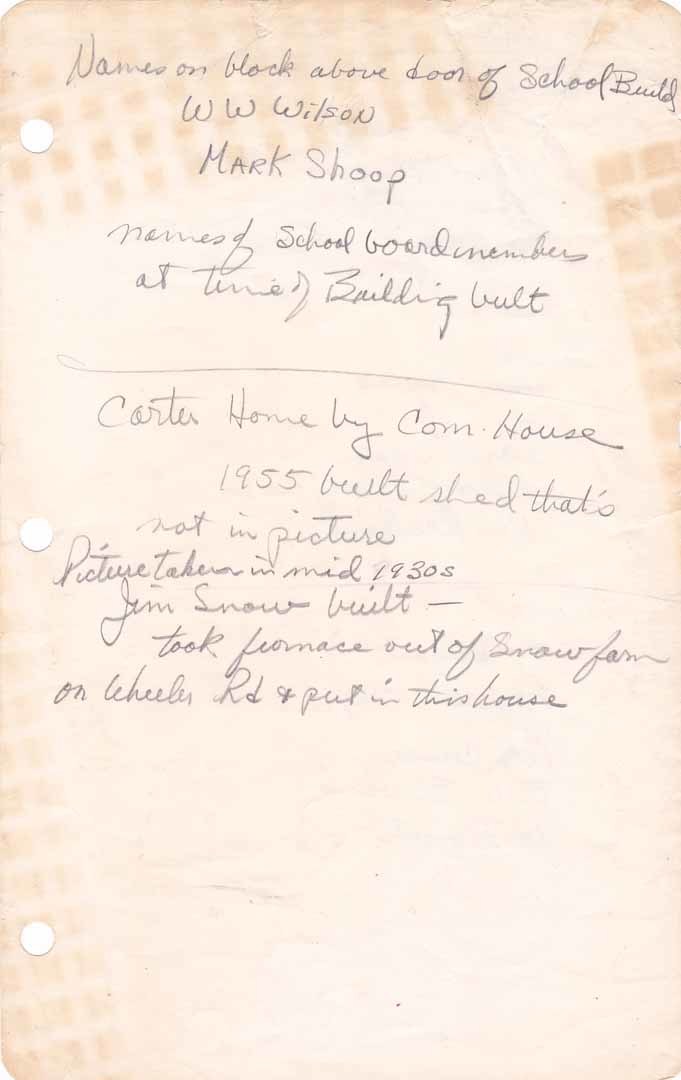 Names on block above door of School Build
W W Wilson
MARK Shoop
names of School board members
at time of Building built
Carter Home by Com. House
1955 built shed that's
not in picture
Picture taken in mid 1930s
Jim Snow built —
took furnace out of Snow farm
on Wheeler Rd & put in this house